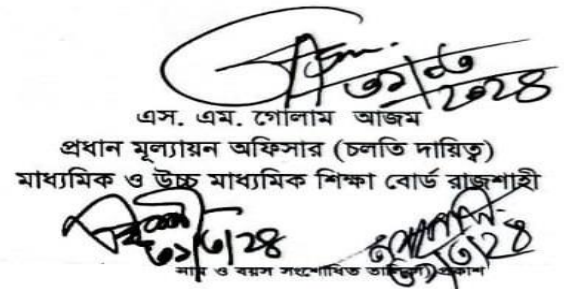 ৩১/৩
২০২৪
এস. এম. গোলাম আজম
প্রধান মূল্যায়ন অফিসার (চলতি দায়িত্ব)
মাধ্যমিক ও উচ্চ মাধ্যমিক শিক্ষা বোর্ড রাজশাহী
৩১/৩/২৪
৩১/৩/২৪
নাম ও বয়স সংশোধিত তালিকা প্রকাশ